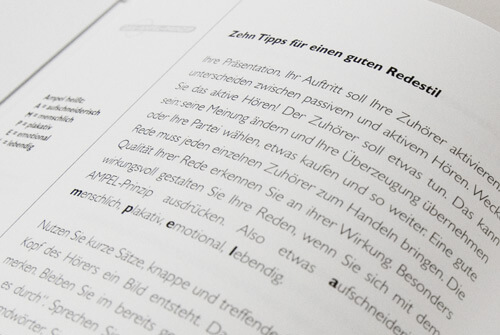 Ampel heißt:
A = aufschneiderisch
M = menschlich
P = plakativ
E = emotional
L = lebendig
Zehn Tipps für einen guten Redestil
Ihre Präsentation, Ihr Auftritt soll Ihre Zuhörer aktivieren
unterscheiden zwischen passivem und aktivem Hören. Weck
Sie das aktive Hören! Der Zuhörer soll etwas tun. Das kann
sein: seine Meinung ändern und Ihre Überzeugung übernehmen
oder Ihre Partei wählen, etwas kaufen und so weiter. Eine gute
Rede muss jeden einzelnen Zuhörer zum Handeln bringen. Die
Qualität Ihrer Rede erkennen Sie an ihrer Wirkung. Besonders
wirkungsvoll gestalten Sie Ihre Reden, wenn Sie sich mit dem
AMPEL-Prinzip ausdrücken. Also etwas aufschneider
menschlich, plakativ, emotional, lebendig.
Nutzen Sie kurze Sätze, knappe und treffende
Kopf des Hörers ein Bild entsteht. Da
merken. Bleiben Sie im bereits g
es durch". Sprechen S
mdwörter. S